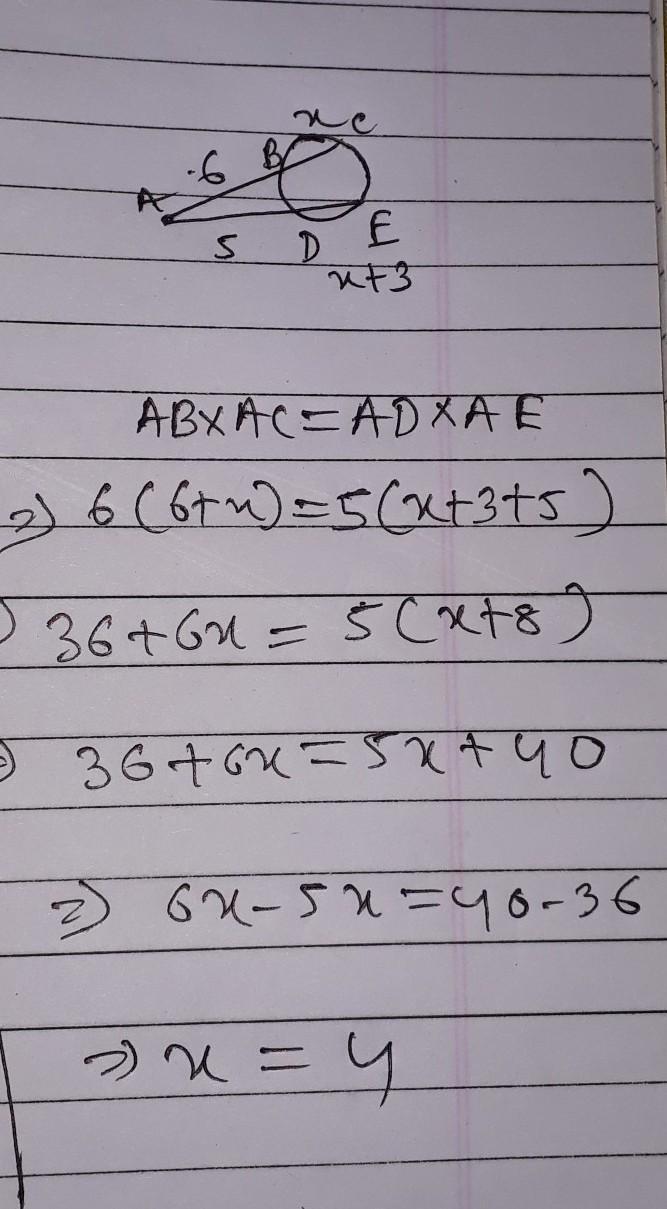 x C
6 B
A
5 D E
x+3
AB×AC=AD×AE
⇒ 6(6+x)=5(x+3+5)
36+6x = 5(x+8)
36+6x=5x+40
⇒ 6x-5x=40-36
⇒ x = 4